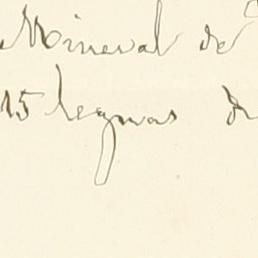 Mineral de
15 leguas de